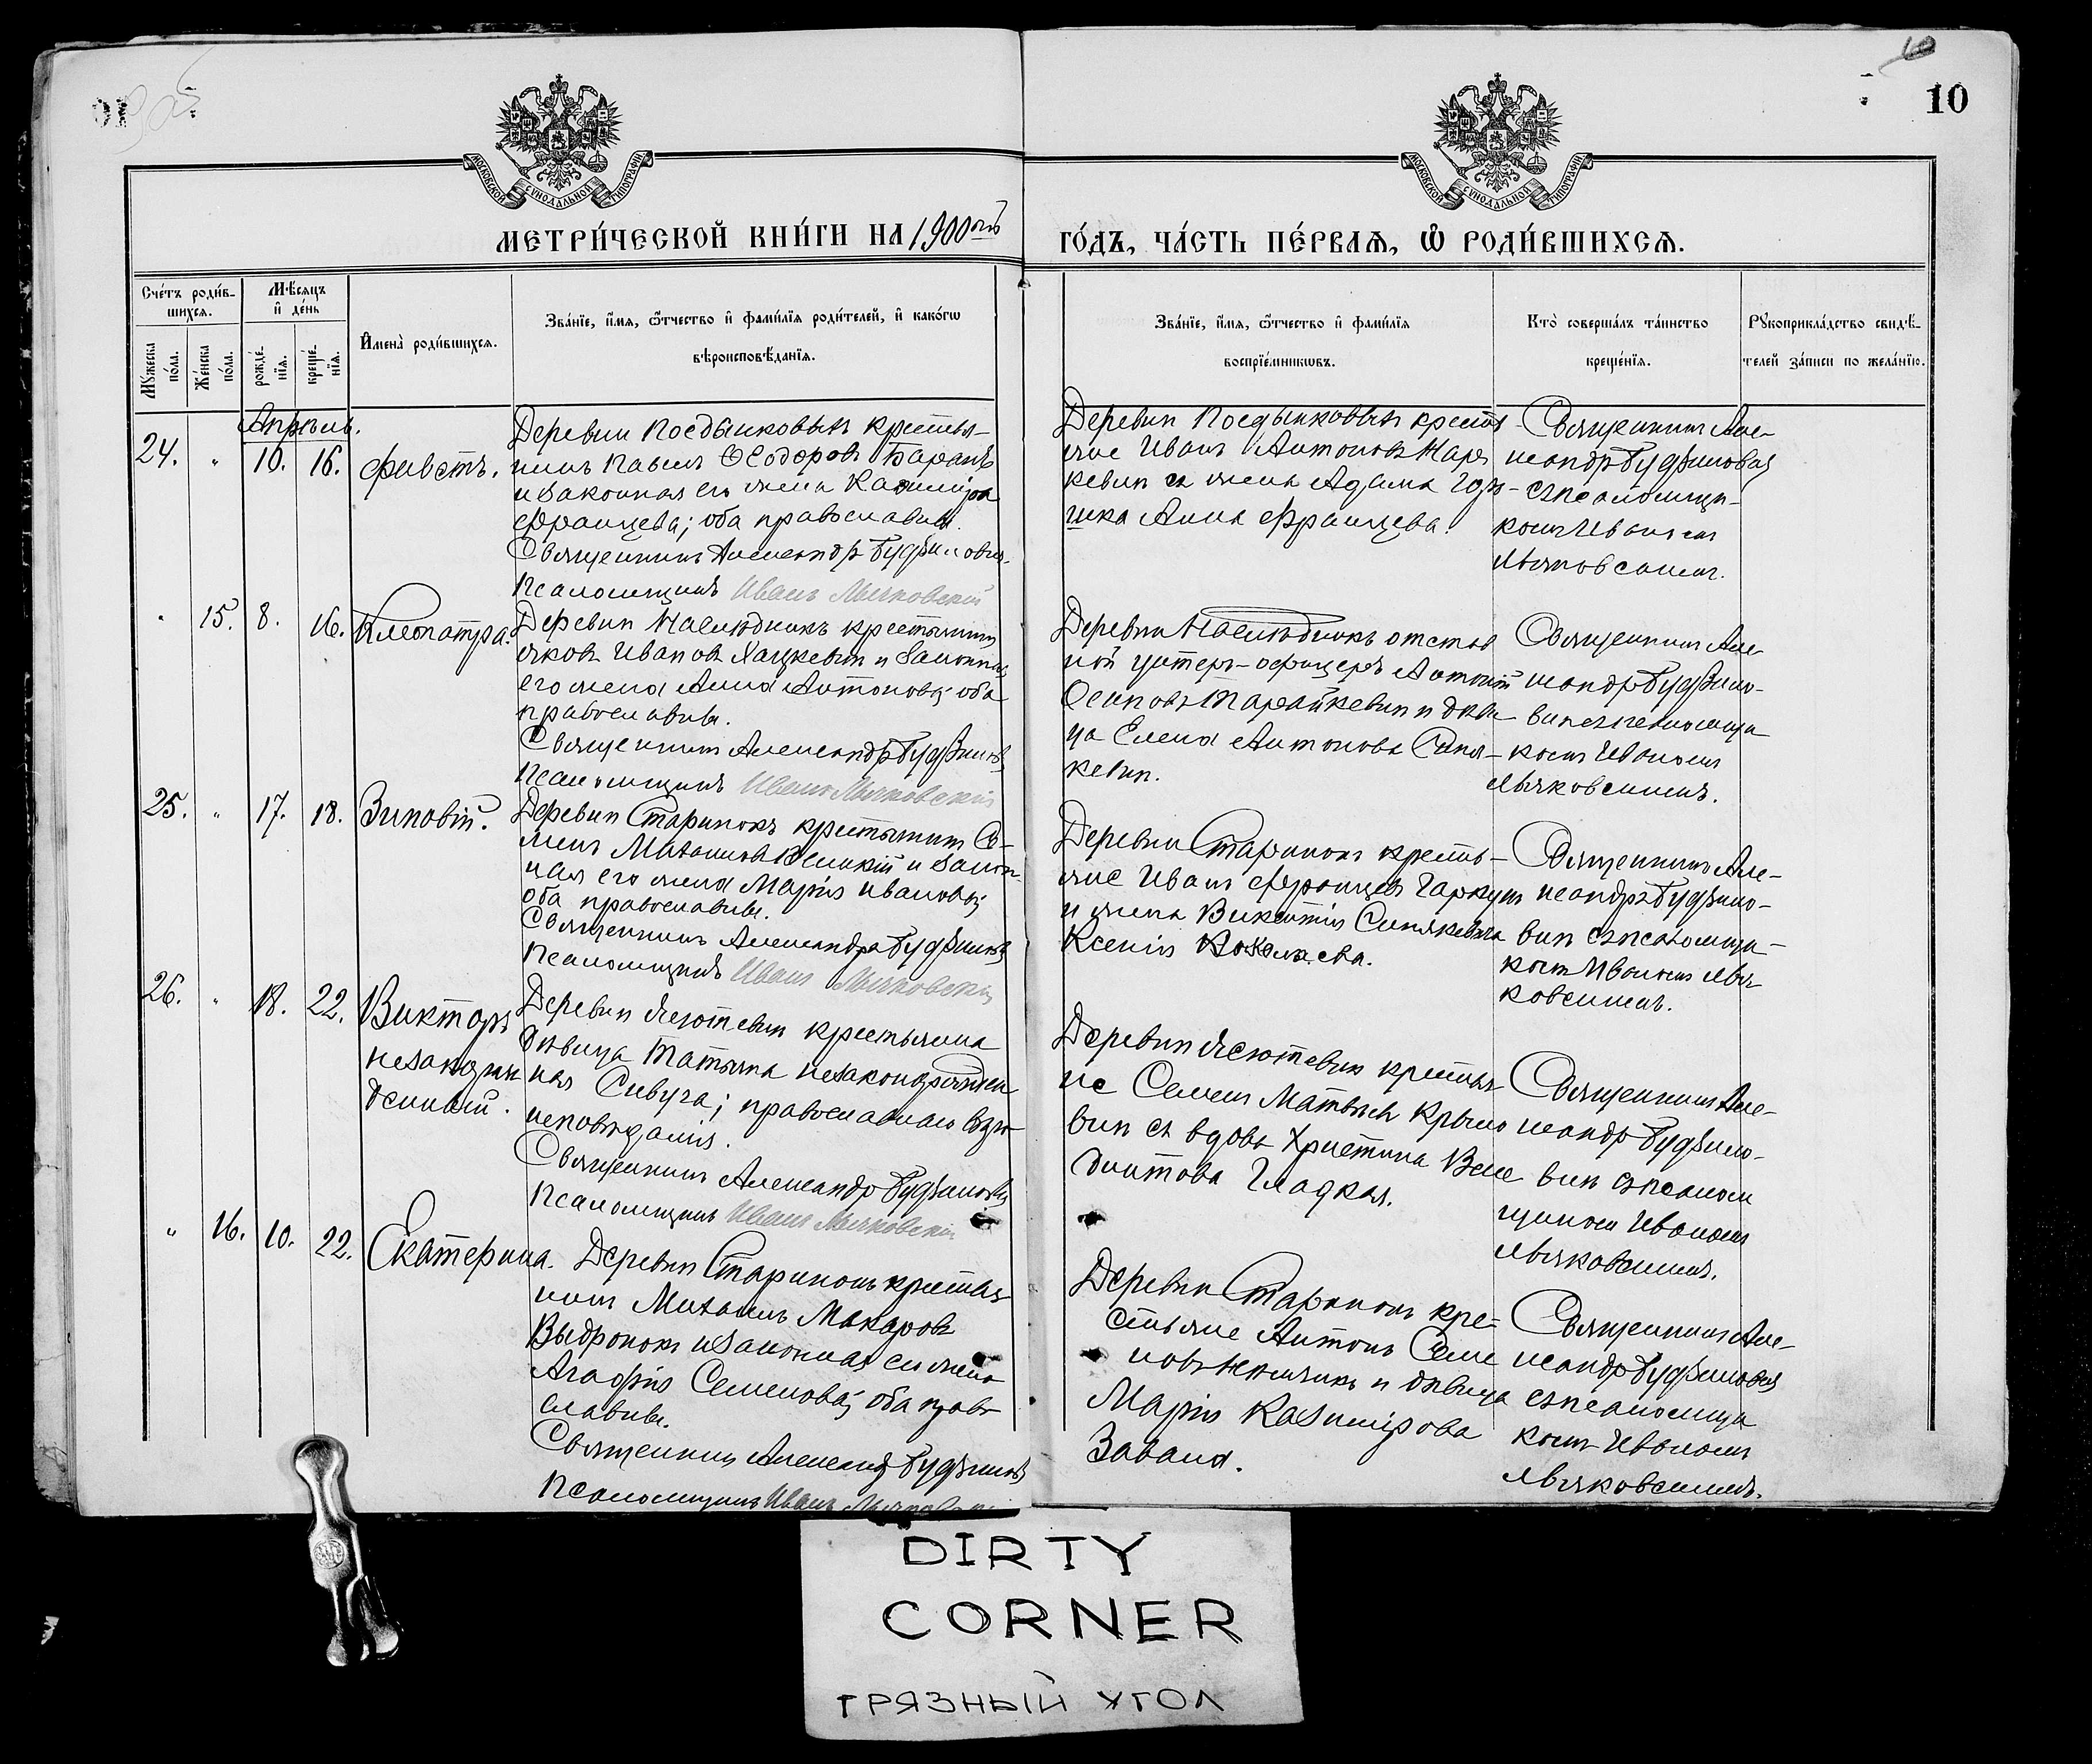 10
МОСКОВСКОЙ СѴНОДАЛЬНОЙ ТИПОГРАФІИ
МОСКОВСКОЙ СѴНОДАЛЬНОЙ ТИПОГРАФІИ
МЕТРИ́ЧЕСКОЙ КНИ́ГИ НА 1900ый
ГО́ДЪ, ЧА́СТЬ ПЕ́РВАѦ, Ѡ РОДИ́ВШИХСѦ.
Сче́тъ роди́в-
шихсѧ.
Мꙋ́жеска
по́ла.
Же́нска
по́ла.
Мѣ́сѧцъ
и҆ де́нь
рожде́-
нїѧ.
креще́-
нїѧ.
И҆мена̀ роди́вшихсѧ.
Зва́нїе, и҆́мѧ, ѻ҆́тчество и҆ фами́лїѧ роди́телей, и҆ како́гѡ
вѣроисповѣ́данїѧ.
Зва́нїе, и҆́мѧ, ѻ҆́тчество и҆ фами́лїѧ
воспрїе́мникѡвъ.
Кто̀ соверша́лъ та́инство
креще́нїѧ.
Рꙋкоприкла́дство свидѣ́-
телей за́писи по жела́нїю.
Апрѣль.
24. " 10. 16. Фавстъ.
крестья-
нинъ Павелъ Ѳеодоровъ Баранъ
и законная его жена Казиміра
Францева; оба православные.
Священникъ Александр Будзиловичъ
Псаломщикъ Иванъ Лычковскій
Деревни крестья-
не Иванъ Антоновъ
кевич и жена Адама
Анна Францева.
Священникъ Але-
ксандръ Будзиловичъ
съ псаломщи-
комъ Иваномъ
Лычковскимъ.
" 15. 8. 16. Клеопатра.
Деревни крестьянинъ
Яковъ Ивановъ Яцкевич и законная
его жена Анна Антонова; оба
православные.
Священникъ Александръ Будзиловичъ
Псаломщикъ Иванъ Лычковскій
Деревни отстав
ной унтеръ-офицеръ Антоній
Осиповъ и дѣви
ца Елена Антонова
кевич.
Священникъ Але
ксандръ Будзило-
вич съ псаломщи
комъ Иваномъ
Лычковскимъ.
25. " 17. 18. Зиновій.
Деревни Старинокъ крестьянинъ Се-
менъ Михаиловъ Великій и закон-
ная его жена Марія Иванова;
оба православные.
Священникъ Александръ Будзиловичъ
Псаломщикъ Иванъ Лычковскій
Деревни Старинокъ кресть-
яне Иванъ Францевъ Гаркунъ
и жена Викентія Синякевича
Ксенія
Священникъ Але-
ксандръ Будзило-
вич съ псаломщи-
комъ Иваномъ Лыч
ковскимъ.
26. " 18. 22. Викторъ
незаконорож
денный.
Деревни крестьянка
дѣвица Татьяна незаконорожден
ная Сивуга; православнаго вѣро-
исповѣданія.
Священникъ Александръ Будзиловичъ
Псаломщикъ Иванъ Лычковскій
Деревни крестья
не Семенъ Матвѣевъ Крыло
вич и вдова Христина Бене
диктова Гладкая.
Священникъ Але-
ксандръ Будзило-
вич съ псалом
щикомъ Иваномъ
Лычковскимъ.
" 16. 10. 22. Екатерина.
Деревни Старинокъ крестья-
нинъ Михаилъ Макаровъ
Выдронокъ и законная его жена
Агафія Семенова; оба право
славные.
Священникъ Александръ Будзиловичъ
Псаломщикъ Иванъ Лычковскій
Деревни Старинокъ кре-
стьяне Антонъ Семе
новъ и дѣвица
Марія Казимірова
Завала.
Священникъ Але-
ксандръ Будзиловичъ
съ псаломщи
комъ Иваномъ
Лычковскимъ.
DIRTY
CORNER
ГРЯЗНЫЙ УГОЛ